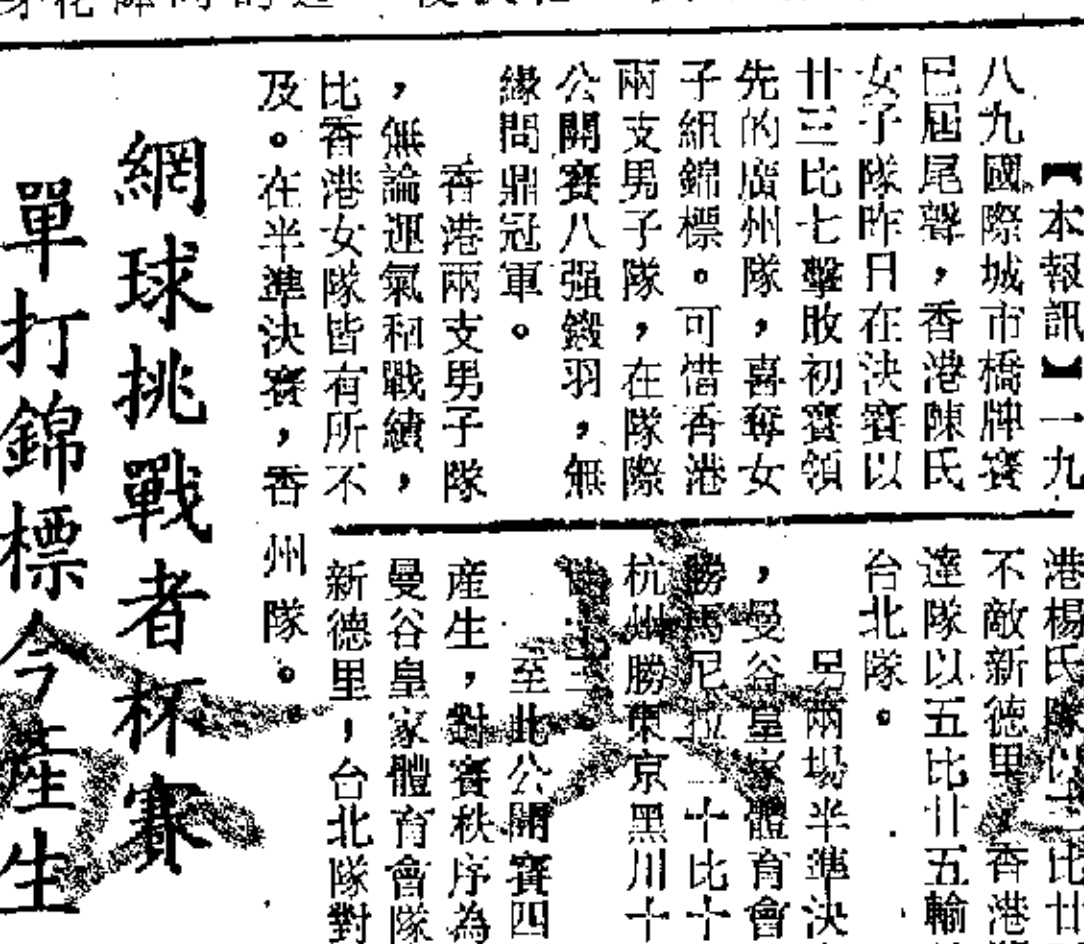 【本報訊】一九
八九國際城市橋牌賽
已屆尾聲，香港陳氏
女子隊昨日在決賽以
廿三比七擊敗初賽領
先的廣州隊，喜奪女
子組錦標。可惜香港
兩支男子隊，在隊際
公開賽八强鎩羽，無
緣問鼎冠軍。
香港兩支男子隊
，無論運氣和戰績，
比香港女隊皆有所不
及。在半準決賽，香
港楊氏隊以三比廿
不敵新德里，香港
達隊以五比廿五輸
台北隊。
另兩場半準決
，曼谷皇家體育會
勝馬尼拉二十比十
杭州勝東京黑川十
至此公開賽四
產生，對賽秩序為
曼谷皇家體育會隊
新德里，台北隊對
州隊。
網球挑戰者杯賽
單打錦標今產生